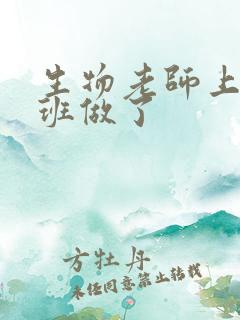 生物老师上
班做了
方牡丹
未经同意禁止转载